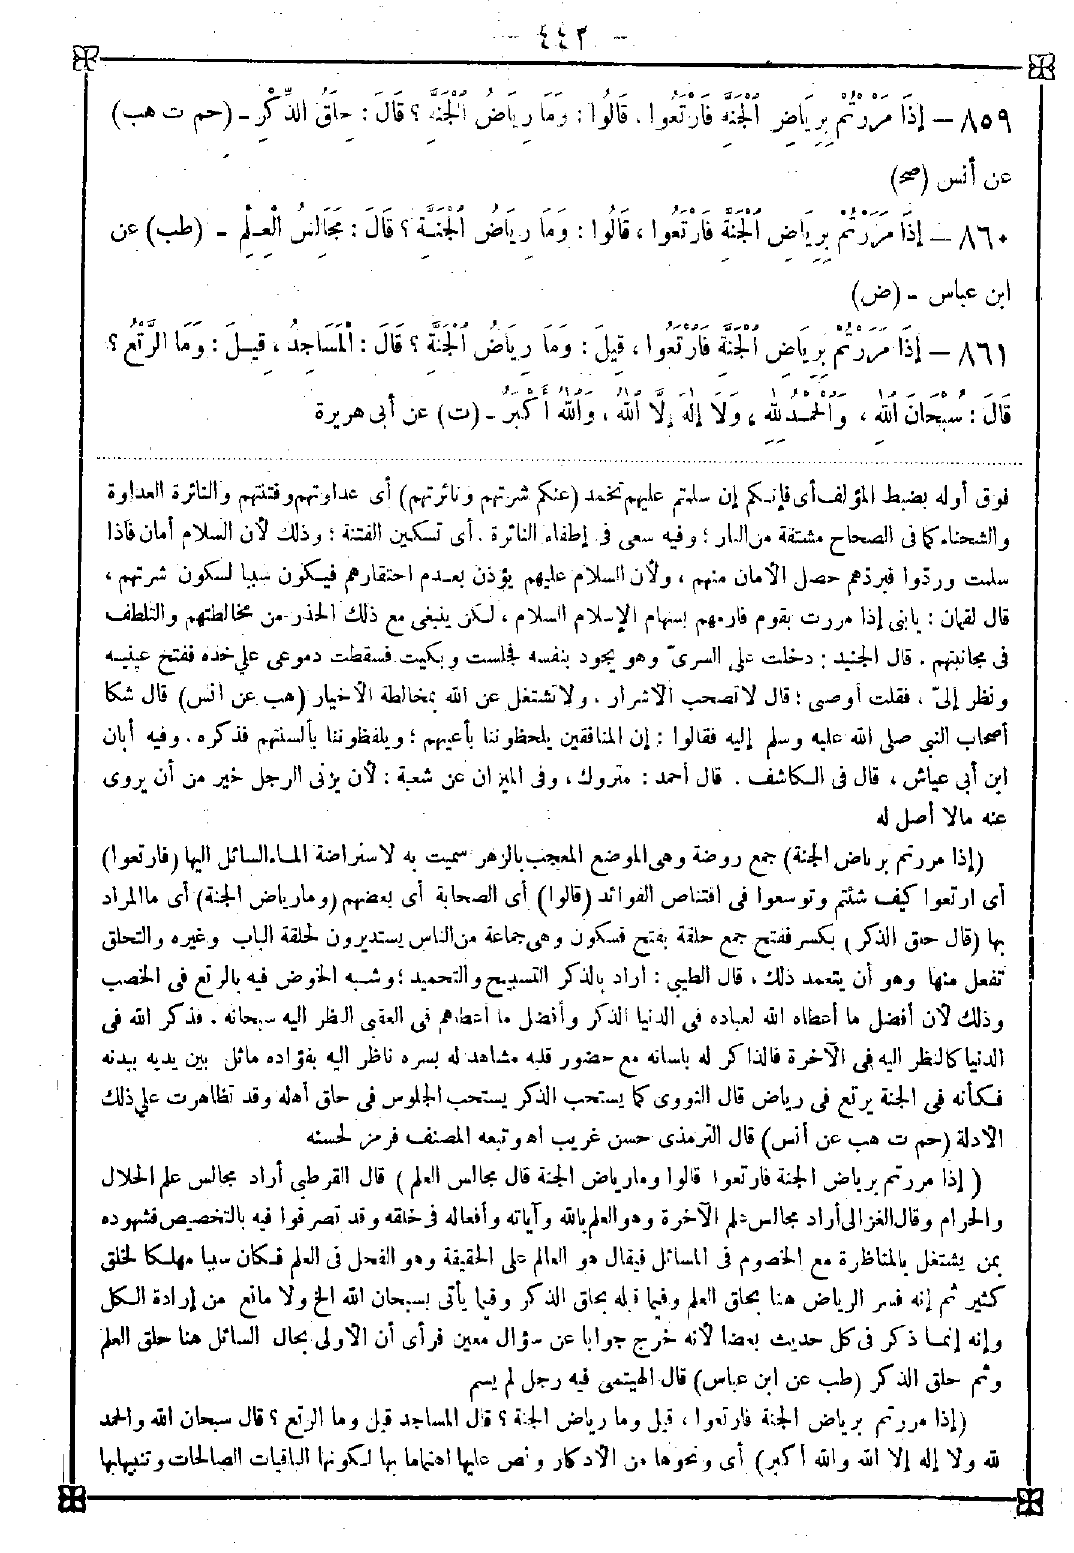 - ٤٤٢ -
٨٥٩ — إِذَا مَرَرْتُمْ بِرِيَاضِ الْجَنَّةِ فَارْتَعُوا . قَالُوا : وَمَا رِيَاضُ الْجَنَّةِ ؟ قَالَ : حِلَقُ الذِّكْرِ - (حم ت هب)
عن أنس (صح)
٨٦٠ — إِذَا مَرَرْتُمْ بِرِيَاضِ الْجَنَّةِ فَارْتَعُوا ، قَالُوا : وَمَا رِيَاضُ الْجَنَّةِ ؟ قَالَ : مَجَالِسُ الْعِلْمِ - (طب) عن
ابن عباس - (ض)
٨٦١ — إِذَا مَرَرْتُمْ بِرِيَاضِ الْجَنَّةِ فَارْتَعُوا ، قِيلَ : وَمَا رِيَاضُ الْجَنَّةِ ؟ قَالَ : الْمَسَاجِدُ ، قِيلَ : وَمَا الرَّتْعُ ؟
قَالَ : سُبْحَانَ اللهِ ، وَالْحَمْدُ لِلهِ ، وَلَا إِلٰهَ إِلَّا اللهُ ، وَاللهُ أَكْبَرُ - (ت) عن أبى هريرة
فوق أوله بضبط المؤلف أى فإنكم إن سلمتم عليهم تخمد (عنكم شرتهم ونائرتهم) أى عداوتهم وفتنتهم والنائرة العداوة
والشحناء كما فى الصحاح مشتقة من النار ؛ وفيه سعى فى إطفاء النائرة . أى تسكين الفتنة ؛ وذلك لأن السلام أمان فاذا
سلمت وردوا فبردهم حصل الأمان منهم ، ولأن السلام عليهم يؤذن بعدم احتقارهم فيكون سببا لسكون شرتهم ،
قال لقمان : يابنى إذا مررت بقوم فارمهم بسهام الإسلام السلام ، لكن ينبغى مع ذلك الحذر من مخالطتهم والتلطف
فى مجانبتهم . قال الجنيد : دخلت على السرىّ وهو يجود بنفسه فجلست وبكيت فسقطت دموعى على خده ففتح عينيه
ونظر إلىّ ، فقلت أوصى ؛ قال لاتصحب الأشرار ، ولا تشتغل عن الله بمخالطة الأخيار (هب عن أنس) قال شكا
أصحاب النبى صلى الله عليه وسلم إليه فقالوا : إن المنافقين يلحظوننا بأعينهم ؛ ويلفظوننا بألسنتهم فذكره . وفيه أبان
ابن أبى عياش ، قال فى الكاشف . قال أحمد : متروك ، وفى الميزان عن شعبة : لأن يزنى الرجل خير من أن يروى
عنه مالا أصل له
(إذا مررتم برياض الجنة) جمع روضة وهى الموضع المعجب بالزهر سميت به لاستراضة الماء السائل اليها (فارتعوا)
أى ارتعوا كيف شئتم وتوسعوا فى اقتناص الفوائد (قالوا) أى الصحابة أى بعضهم (ومارياض الجنة) أى ماالمراد
بها (قال حلق الذكر) بكسر ففتح جمع حلقة بفتح فسكون وهى جماعة من الناس يستديرون لحلقة الباب وغيره والتحلق
تفعل منها وهو أن يتعمد ذلك ، قال الطيبى : أراد بالذكر التسبيح والتحميد ؛ وشبه الخوض فيه بالرتع فى الخصب
وذلك لأن أفضل ما أعطاه الله لعباده فى الدنيا الذكر وأفضل ما أعطاهم فى العقبى النظر اليه سبحانه . فذكر الله فى
الدنيا كالنظر اليه فى الآخرة فالذاكر له بلسانه مع حضور قلبه مشاهد له بسره ناظر اليه بفؤاده ماثل بين يديه ببدنه
فكأنه فى الجنة يرتع فى رياض قال النووى كما يستحب الذكر يستحب الجلوس فى حلق أهله وقد تظاهرت على ذلك
الأدلة (حم ت هب عن أنس) قال الترمذى حسن غريب اه وتبعه المصنف فرمز لحسنه
( إذا مررتم برياض الجنة فارتعوا قالوا ومارياض الجنة قال مجالس العلم ) قال القرطبى أراد مجالس علم الحلال
والحرام وقال الغزالى أراد مجالس علم الآخرة وهو العلم بالله وآياته وأفعاله فى خلقه وقد تصرفوا فيه بالتخصيص فشهوده
بمن يشتغل بالمناظرة مع الخصوم فى المسائل فيقال هو العالم على الحقيقة وهو الفحل فى العلم فكان سببا مهلكا لخلق
كثير ثم إنه فسر الرياض هنا بحلق العلم وفيما قبله بحلق الذكر وفيما يأتى بسبحان الله الخ ولا مانع من إرادة الكل
وإنه إنما ذكر فى كل حديث بعضا لأنه خرج جوابا عن سؤال معين فرأى أن الأولى بحال السائل هنا حلق العلم
وثم حلق الذكر (طب عن ابن عباس) قال الهيتمى فيه رجل لم يسم
(إذا مررتم برياض الجنة فارتعوا ، قيل وما رياض الجنة ؟ قال المساجد قيل وما الرتع ؟ قال سبحان الله والحمد
لله ولا إله إلا الله والله أكبر) أى ونحوها من الأذكار ونص عليها اهتماما بها لكونها الباقيات الصالحات وتنبيها بها